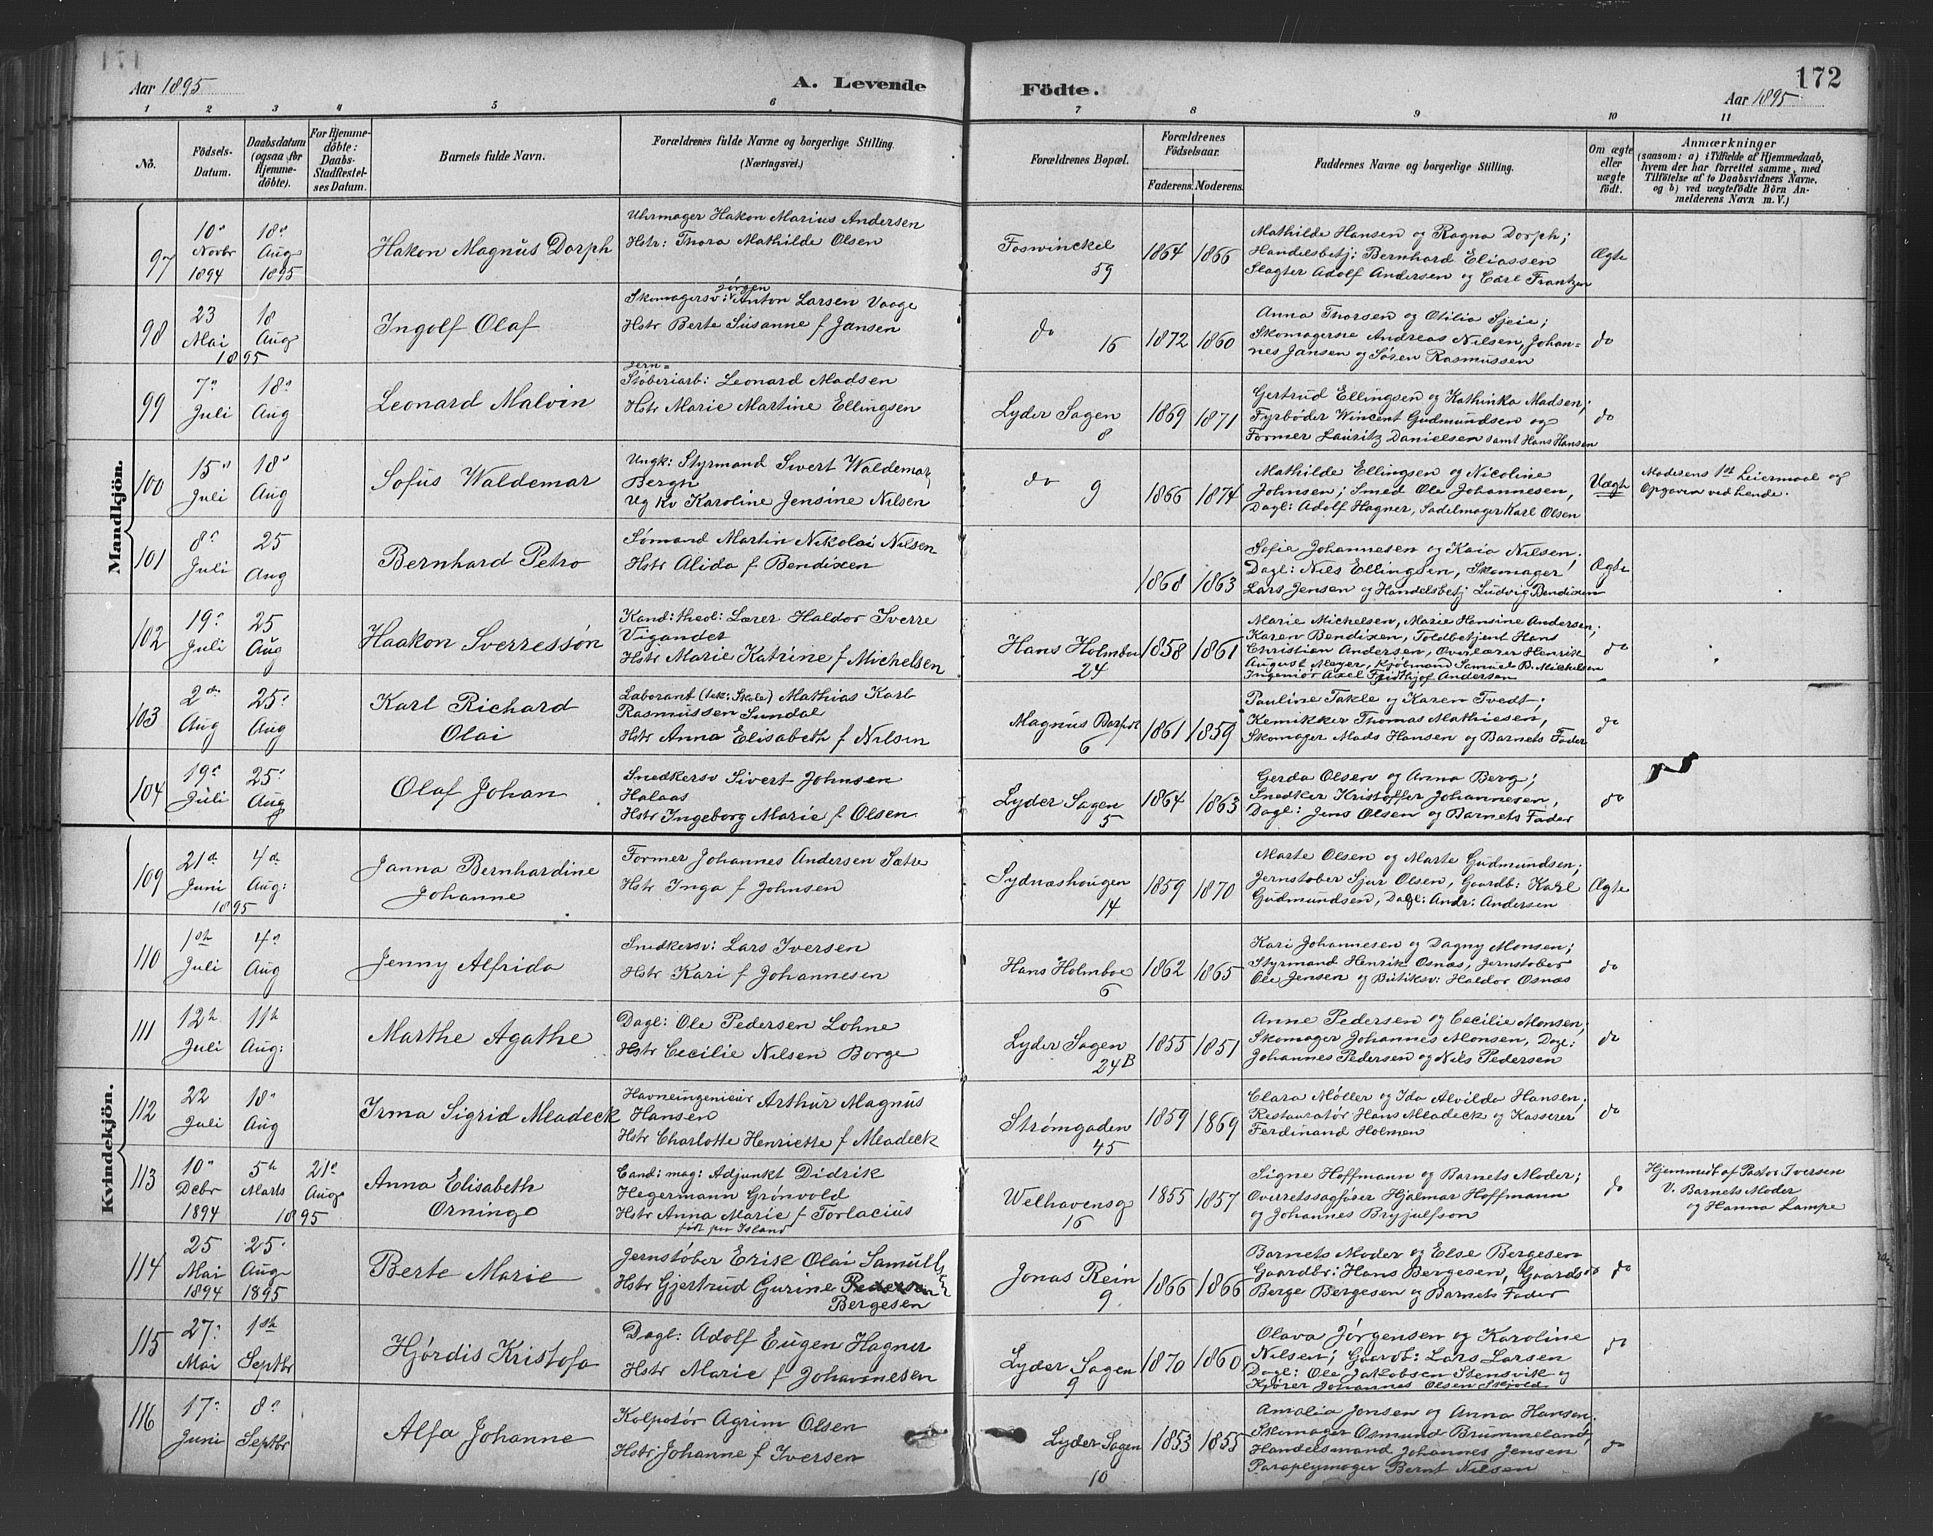 171
Aar 1895
A. Levende
Födte.
172
Aar 1895
1 2 3 4 5 6 7 8 9 10 11
No.
Födsels-Datum.
Daabsdatum (ogsaa for Hjemme-döbte).
For Hjemme-döbte: Daabs-Stadfæstel-ses Datum.
Barnets fulde Navn.
Forældrenes fulde Navne og borgerlige Stilling. (Næringsvei.)
Forældrenes Bopæl.
Forældrenes Födselsaar.
Faderens. Moderens.
Faddernes Navne og borgerlige Stilling.
Om ægte eller uægte födt.
Anmærkninger
(saasom: a) i Tilfælde af Hjemmedaab,
hvem der har forrettet samme, med
Tilföielse af to Daabsvidners Navne,
og b) ved uægtefödte Börn An-
melderens Navn m. V.)
Mandkjön.
97 10de Novbr 1894 18de Aug 1895
Hakon Magnus Dorph
Uhrmager Hakon Marius Andersen
Hstr: Thora Mathilde Olsen
Foswinckel 59
1864 1866
Mathilde Hansen og Ragna Dorph;
Handelsbetj: Bernhard Eliassen
Slagter Adolf Andersen og Carl Frantzen
Ægte
98 23 Mai 18 Aug 1895
Ingolf Olaf
Skomagersv: Jörgen Anton Larsen Vaage
Hstr Berte Susanne f Jansen
do 16
1872 1860
Anna Thorsen og Otilia Sjeie;
Skomagerne Andreas Nilsen, Johan=
nes Jansen og Søren Rasmussen
do
99 7de Juli 18de Aug
Leonard Malvin
Jern=
Støberiarb: Leonard Madsen
Hstr Marie Martine Ellingsen
Lyder Sagen 8
1869 1871
Gertrud Ellingsen og Kathinka Madsen;
Fyrbøder Wincent Gudmundsen og
Former Lauritz Danielsen samt Hans Hansen
do
100 15de Juli 18de Aug
Sofus Waldemar
Ungk: Styrmand Sivert Waldemar
Bergh
Ug Kv Karoline Jensine Nilsen
do 9
1866 1874
Mathilde Ellingsen og Nicoline
Johnsen; Smed Ole Johannesen,
Dagl: Adolf Hagner, Sadelmager Karl Olsen
Uægte
Moderens 1ste Leiermaal og
Opgaven ved hende.
101 8de Juli 25 Aug
Bernhard Petro
Sømand Martin Nikolai Nilsen
Hstr Alida f Bendixen
1868 1863
Sofie Johannesen og Kaia Nilsen;
Dagl: Nils Ellingsen, Skomager
Lars Jensen og Handelsbetj Ludvig Bendixen
Ægte
102 19de Juli 25 Aug
Haakon Sverressøn
Kand: theol: Lærer Haldor Sverre
Vigander
Hstr Marie Katrine f Michelsen
Hans Holmboe 24
1858 1861
Marie Michelsen, Marie Hansine Andersen,
Karen Bendixen, Toldbetjent Hans
Christian Andersen, Overlærer Henrik
August Meyer, Kjøbmand Samuel B. Michelsen
Ingeniør Axel Fridthjof Andersen
do
103 2den Aug 25de Aug
Karl Richard
Olai
Laborant (tek: Skole) Mathias Karl
Rasmussen Sundal
Hstr Anna Elisabeth f Nilsen
Magnus Barfods 6
1861 1859
Pauline Takle og Karen Tvedt;
Kemikker Thomas Mathiesen,
Skomager Mads Hansen og Barnets Fader
do
104 19de Juli 25de Aug
Olaf Johan
Snedkersv Sivert Johnsen
Halaas
Hstr Ingeborg Marie f Olsen
Lyder Sagen 5
1864 1863
Gerda Olsen og Anna Berg;
Snedker Kristoffer Johannesen,
Dagl: Jens Olsen og Barnets Fader
do
Kvindekjön.
109 21de Juni 4de Aug: 1895
Janna Bernhardine
Johanne
Former Johannes Andersen Sætre
Hstr Inga f Johnsen
Sydnæshougen 14
1859 1870
Marte Olsen og Marte Gudmundsen;
Jernstøber Sjur Olsen, Gaardb: Karl
Gudmundsen, Dagl: Andr: Andersen
Ægte
110 1ste Juli 4de Aug
Jenny Alfrida
Snedkersv: Lars Iversen
Hstr Kari f Johannesen
Hans Holmboe 6
1862 1865
Kari Johannesen og Dagny Monsen;
Styrmand Henrik Osnæs, Jernstøber
Ole Jensen og Butiksv: Haldor Osnæs
do
111 12te Juli 11te Aug:
Marthe Agathe
Dagl: Ole Pedersen Lohne
Hstr Cecilie Nilsen Borge
Lyder Sagen 24B
1855 1851
Anne Pedersen og Cecilie Monsen;
Skomager Johannes Monsen, Dagl:
Johannes Pedersen og Nils Pedersen
do
112 22 Juli 18de Aug
Irma Sigrid Meadeck
Havneingeniør Arthur Magnus
Hansen
Hstr Charlotte Henriette f Meadeck
Strømgaden 45
1859 1869
Clara Møller og Ida Alvilda Hansen;
Restauratør Hans Meadeck og Kasserer
Ferdinand Holmen
do
113 10de Debr 1894 5te Marts 21de Aug 1895
Anna Elisabeth
Orninge
Cand: mag: Adjunkt Didrik
Hegermann Grönvold
Hstr Anna Marie f Torlacius
født paa Island
Welhavensg 16
1855 1857
Signe Hoffmann og Barnets Moder;
Overretssagfører Hjalmar Hoffmann
og Johannes Brynjulfson
do
Hjemmedt af Pastor Iversen
V. Barnets Moder
og Hanna Lampe
114 25 Mai 1894 25de Aug 1895
Berte Marie
Jernstøber Erik Olai Samuelsen
Hstr Gjertrud Gurine Pedersen
Bergesen
Jonas Rein 9
1866 1866
Barnets Moder og Else Bergesen
Gaardbr: Hans Bergesen, Gaards
Berge Bergesen og Barnets Fader
do
115 27de Mai 1ste Septbr
Hjördis Kristofa
Dagl: Adolf Eugen Hagner
Hstr Marie f Johannesen
Lyder Sagen 9
1870 1860
Olava Jørgensen og Karoline
Nilsen; Gaardb: Lars Larsen
Dagl: Ole Jakobsen Stensvik og
Kjører Johannes Olsen Skjold
do
116 17de Juni 8de Septbr
Alfa Johanne
Kolportør Agrim Olsen
Hstr Johanne f Iversen
Lyder Sagen 10
1853 1855
Amalia Jensen og Anna Hansen;
Skomager Osmund Brummeland,
Handelsmand Johannes Jensen
Paraplymager Bernt Nilsen
do